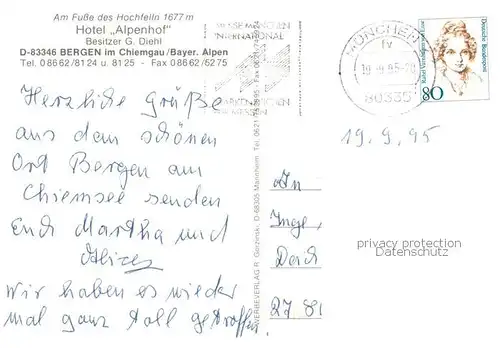 Am Fuße des Hochfelln 1677 m
Hotel „Alpenhof"
Besitzer G. Diehl
D-83346 BERGEN im Chiemgau/Bayer. Alpen
Tel. 08662/8124 u. 8125 - Fax 08662/5275
MESSE MÜNCHEN
INTERNATIONAL
MÜNCHEN
80335
Rahel Varnhagen von Ense
Deutsche Bundespost
80
19.9.95
Herzliche Grüße
aus dem schönen
Ort Bergen am
Chiemsee senden
Euch Martha und
Wir haben es wieder
mal ganz toll getroffen.
WERBEVERLAG R. D-68305 Mannheim Tel. 0621
An
Inge
27
privacy protection
Datenschutz